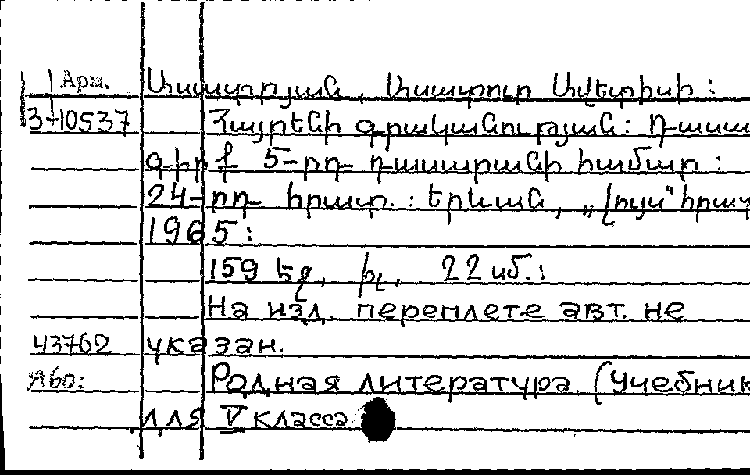 Арм. Ասատրյան, Ասատուր Ավետիսի:
3-10537 Հայրենի գրականության: Դասա
գիրք 5-րդ դասարանի համար:
24-րդ հրատ.: Երևան, „Լույս" հրատ
1965:
159 էջ, իլ., 22 սմ.:
На изд. переплете авт. не
43762 указан.
Яво: Родная литература (Учебник
для V класса